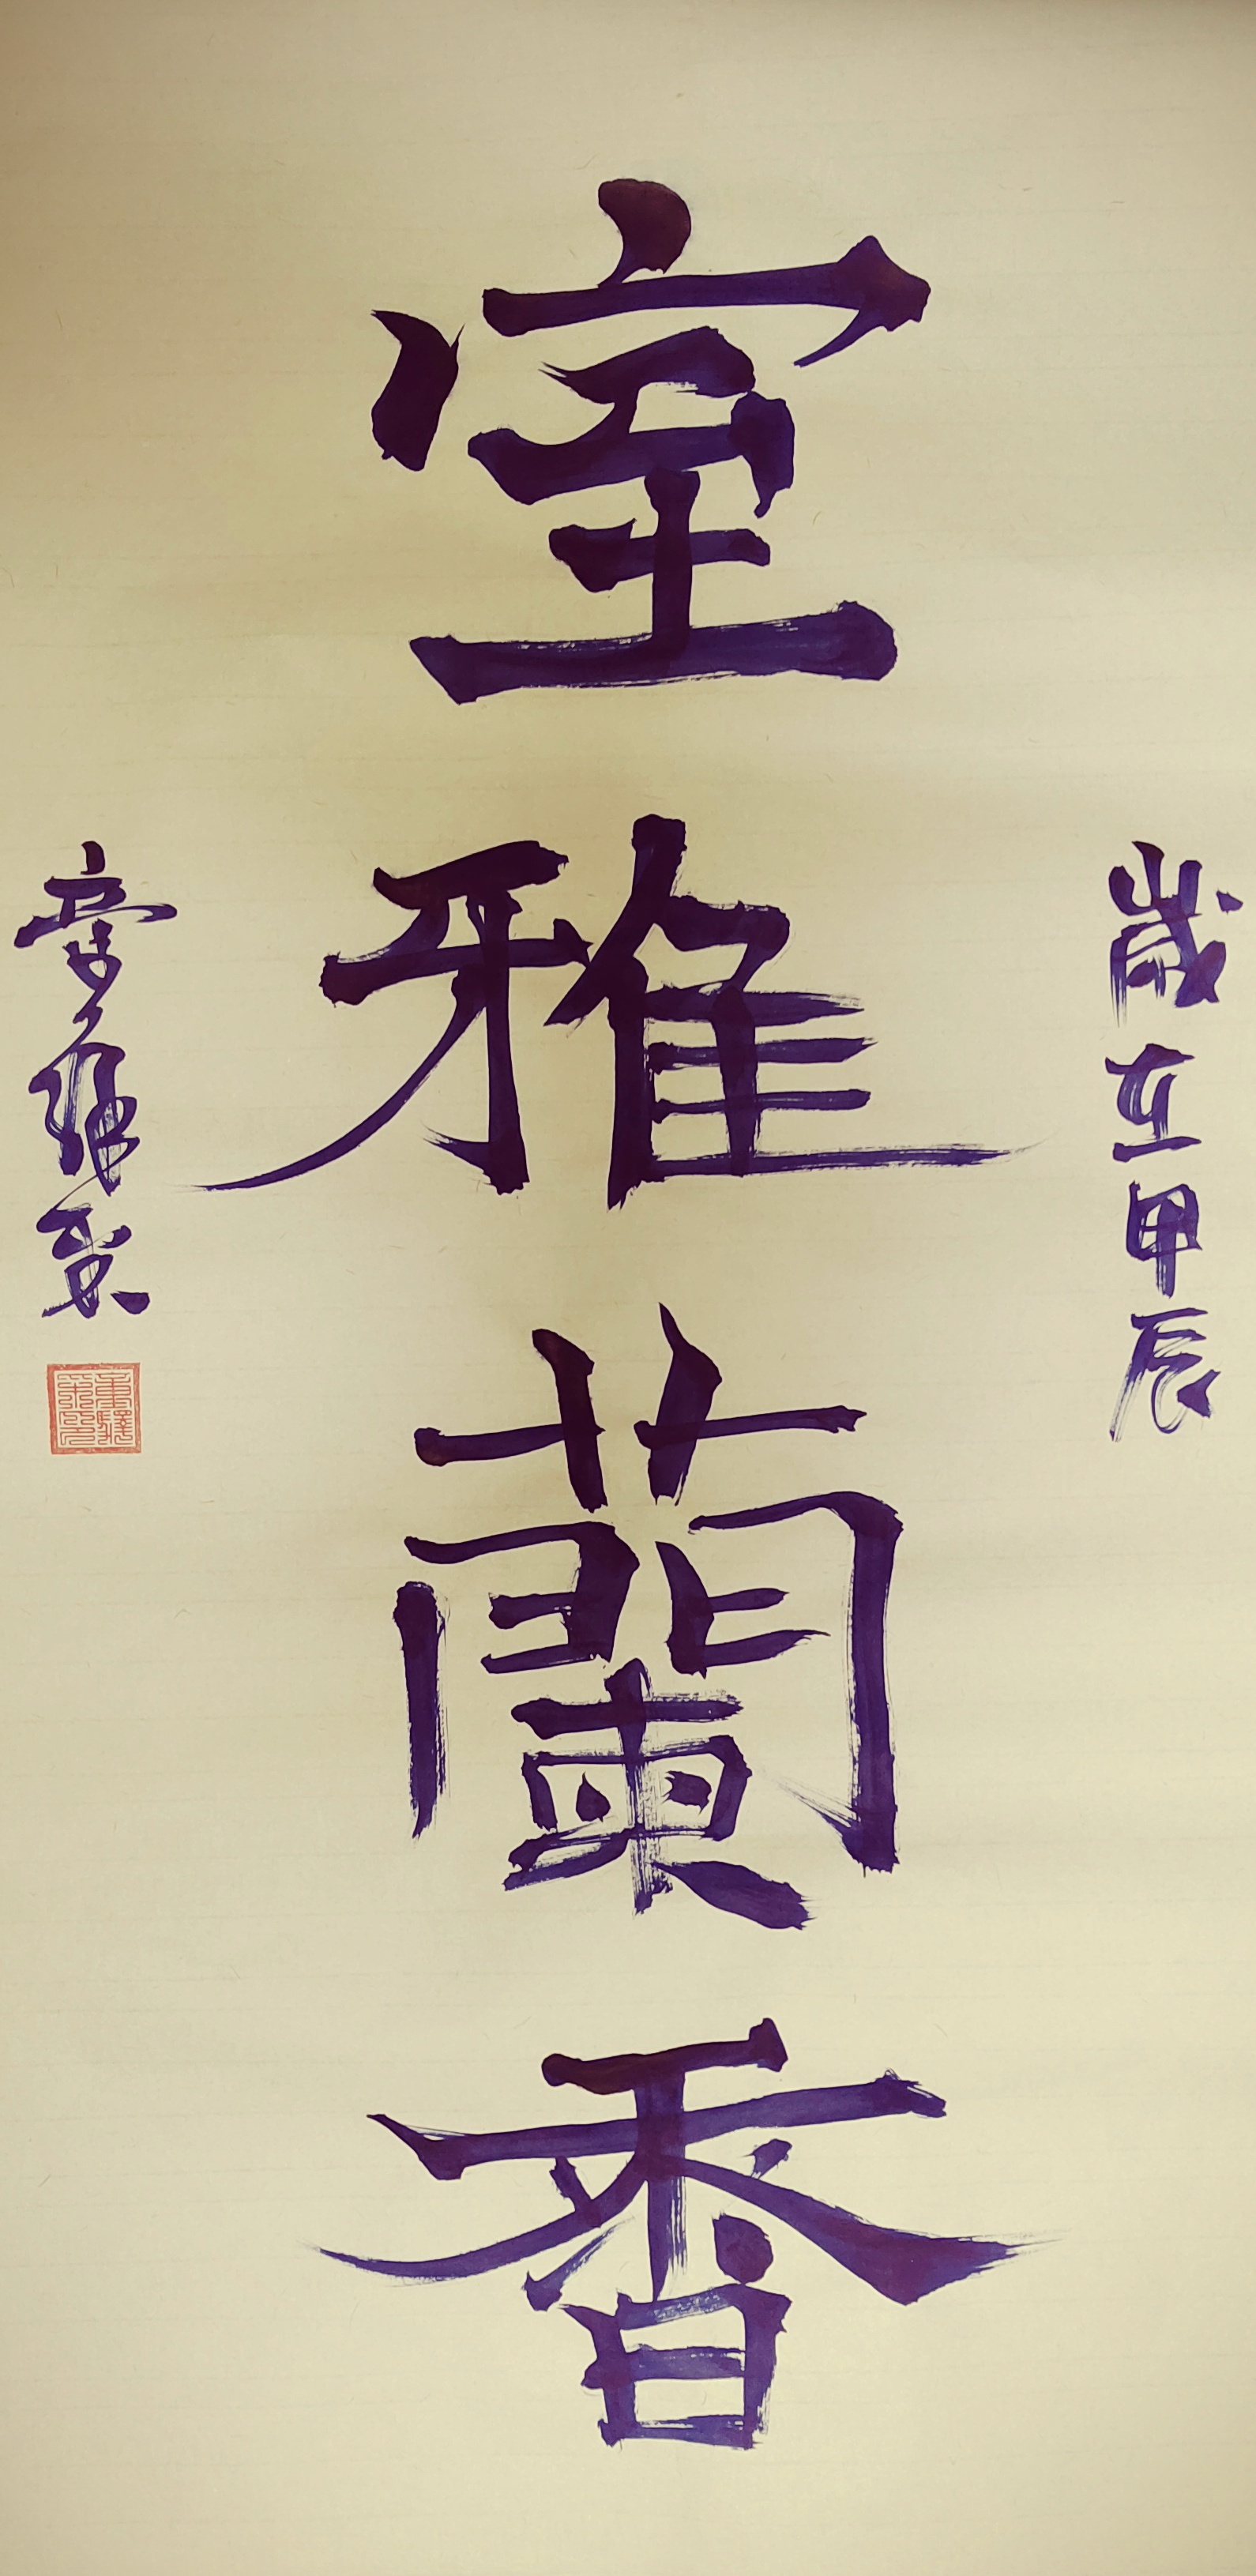 歲在甲辰
室雅蘭香